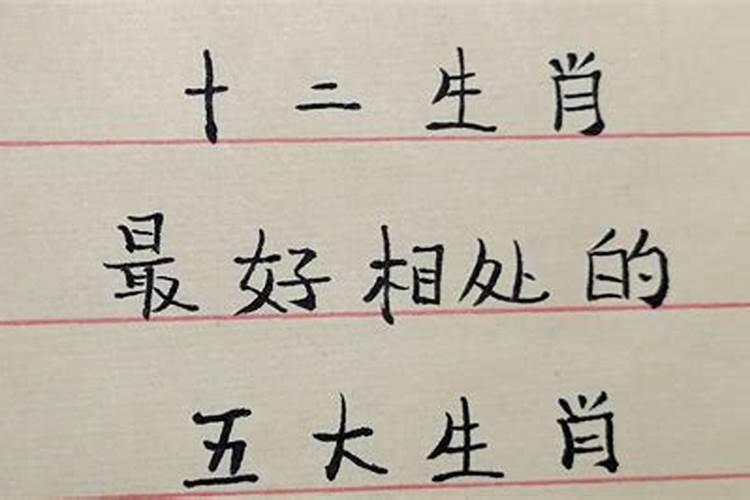 十二生肖
最好相处的
五大生肖